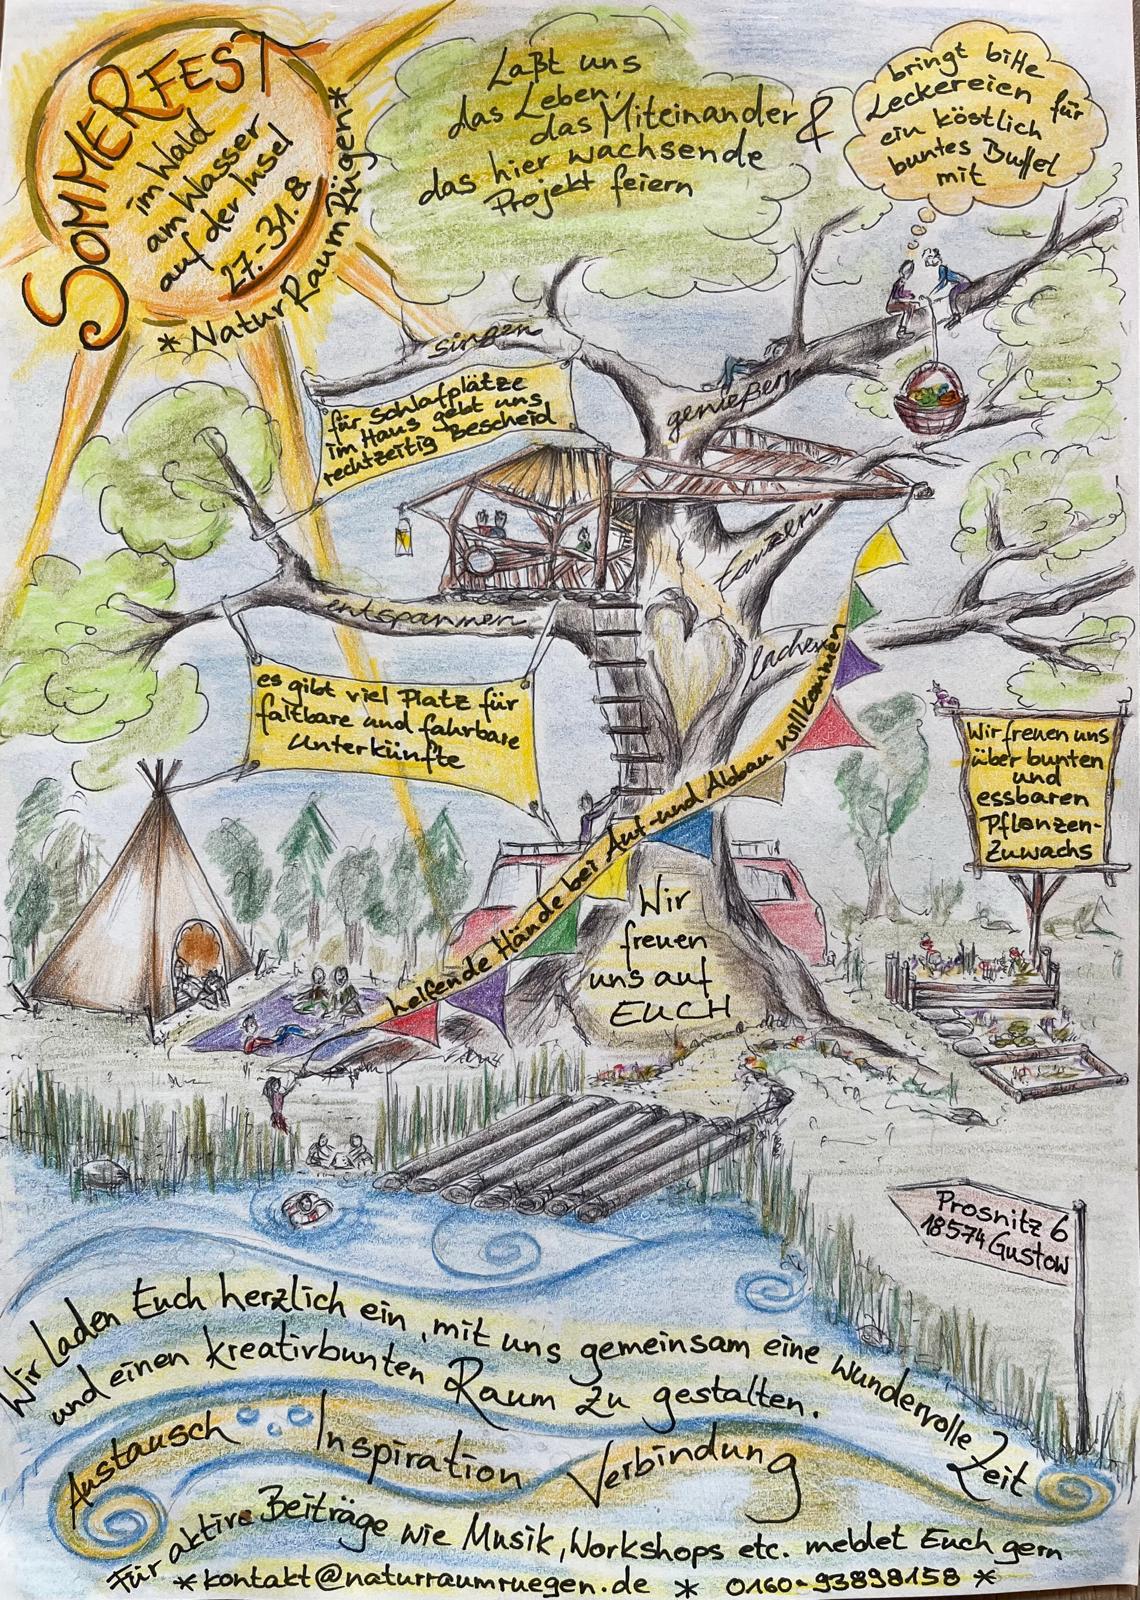 SOMMERFEST
im Wald
am Wasser
auf der Insel
27.-31.8.
*NaturRaumRügen*
Laßt uns
das Leben,
das Miteinander &
das hier wachsende
Projekt feiern
bringt bitte
Leckereien für
ein köstlich
buntes Buffet
mit
singen
genießen
für Schlafplätze
im Haus gebt uns
rechtzeitig Bescheid
tanzen
entspannen
lachen
es gibt viel Platz für
faltbare und fahrbare
Unterkünfte
helfende Hände bei Auf- und Abbau willkommen
Wir freuen uns
über bunten
und
essbaren
Pflanzen-
Zuwachs
Wir
freuen
uns auf
EUCH
Prosnitz 6
18574 Gustow
Wir Laden Euch herzlich ein, mit uns gemeinsam eine wundervolle Zeit
und einen kreativbunten Raum zu gestalten.
Austausch Inspiration Verbindung
Für aktive Beiträge wie Musik, Workshops etc. meldet Euch gern
*kontakt@naturraumruegen.de * 0160-93898158 *